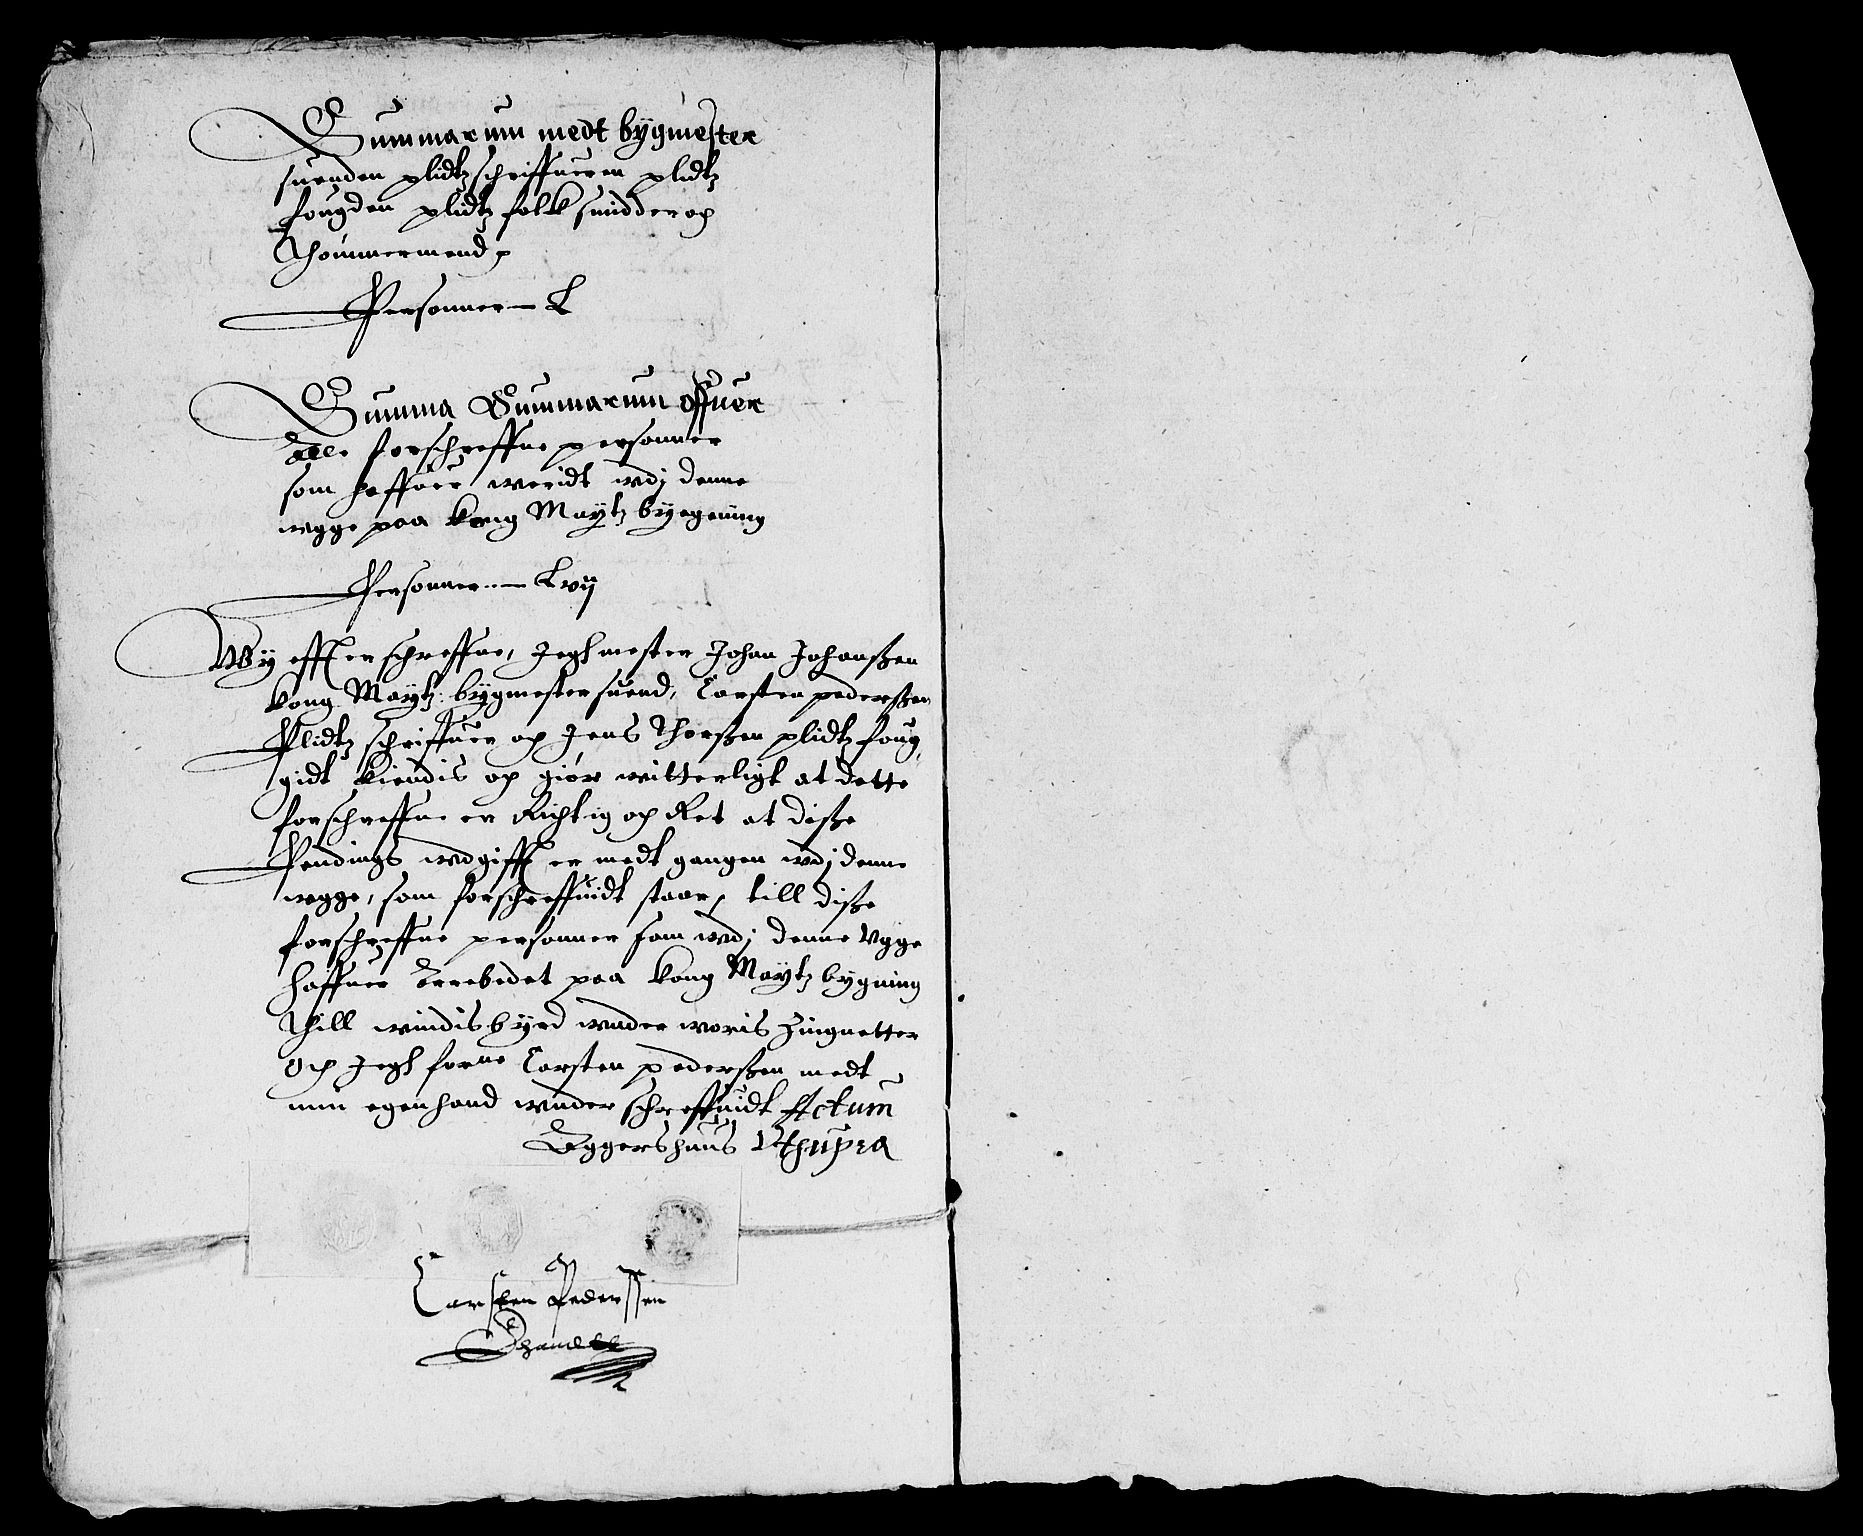 Summarum medt bygmester
suenden plidtz schriffueren plidtz
fougden plidtz folk smidder och
Thømmermend
Personner — L
Summa Summarum offuer
Alle forschreffne personner
som haffuer weridt wdj denne
wgge paa kong Maytz byegening
Personner — Lvij
Wy effterschreffne, Jegh mester Johan Johanßen
kong Maytz bygmestersuend, Carsten pederßen
Plidtz schriffuer och Jens Thorßen plidtz foug
gidt kiendis och giør witterligt at dette
forschreffne er Richtig och Ret at diße
Pendings wdgifft er medt gangen wdj denne
wgge, som forschreffuidt staar, till diße
forschreffne personner som wdj denne Vgge
haffuer Arrebedet paa kong Maytz bygning
Thill windisbyrd wnder woris Zingnetter
Och Jegh forne Carsten pederßen medt
min egen hand wnder schreffuidt Actum
Aggershuus Vthupra
Carsten Pederssen
Ehandtt